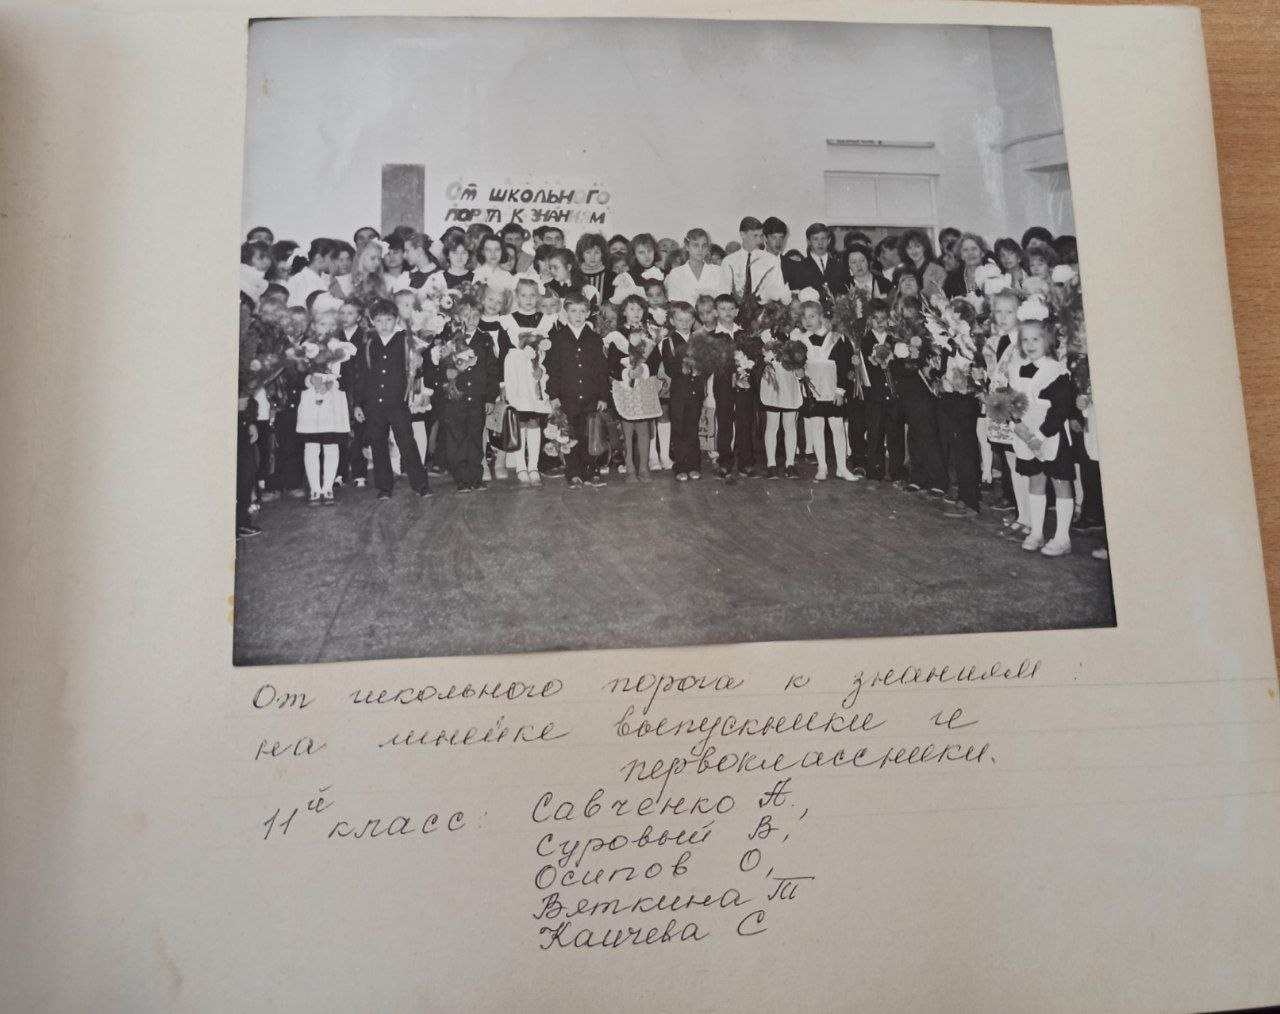 От школьного
порога к знаниям
От школьного порога к знаниям:
на линейке выпускники и
первоклассники.
11й класс: Савченко А.,
Суровый В,
Осипов О,
Вяткина Т
Каичева С